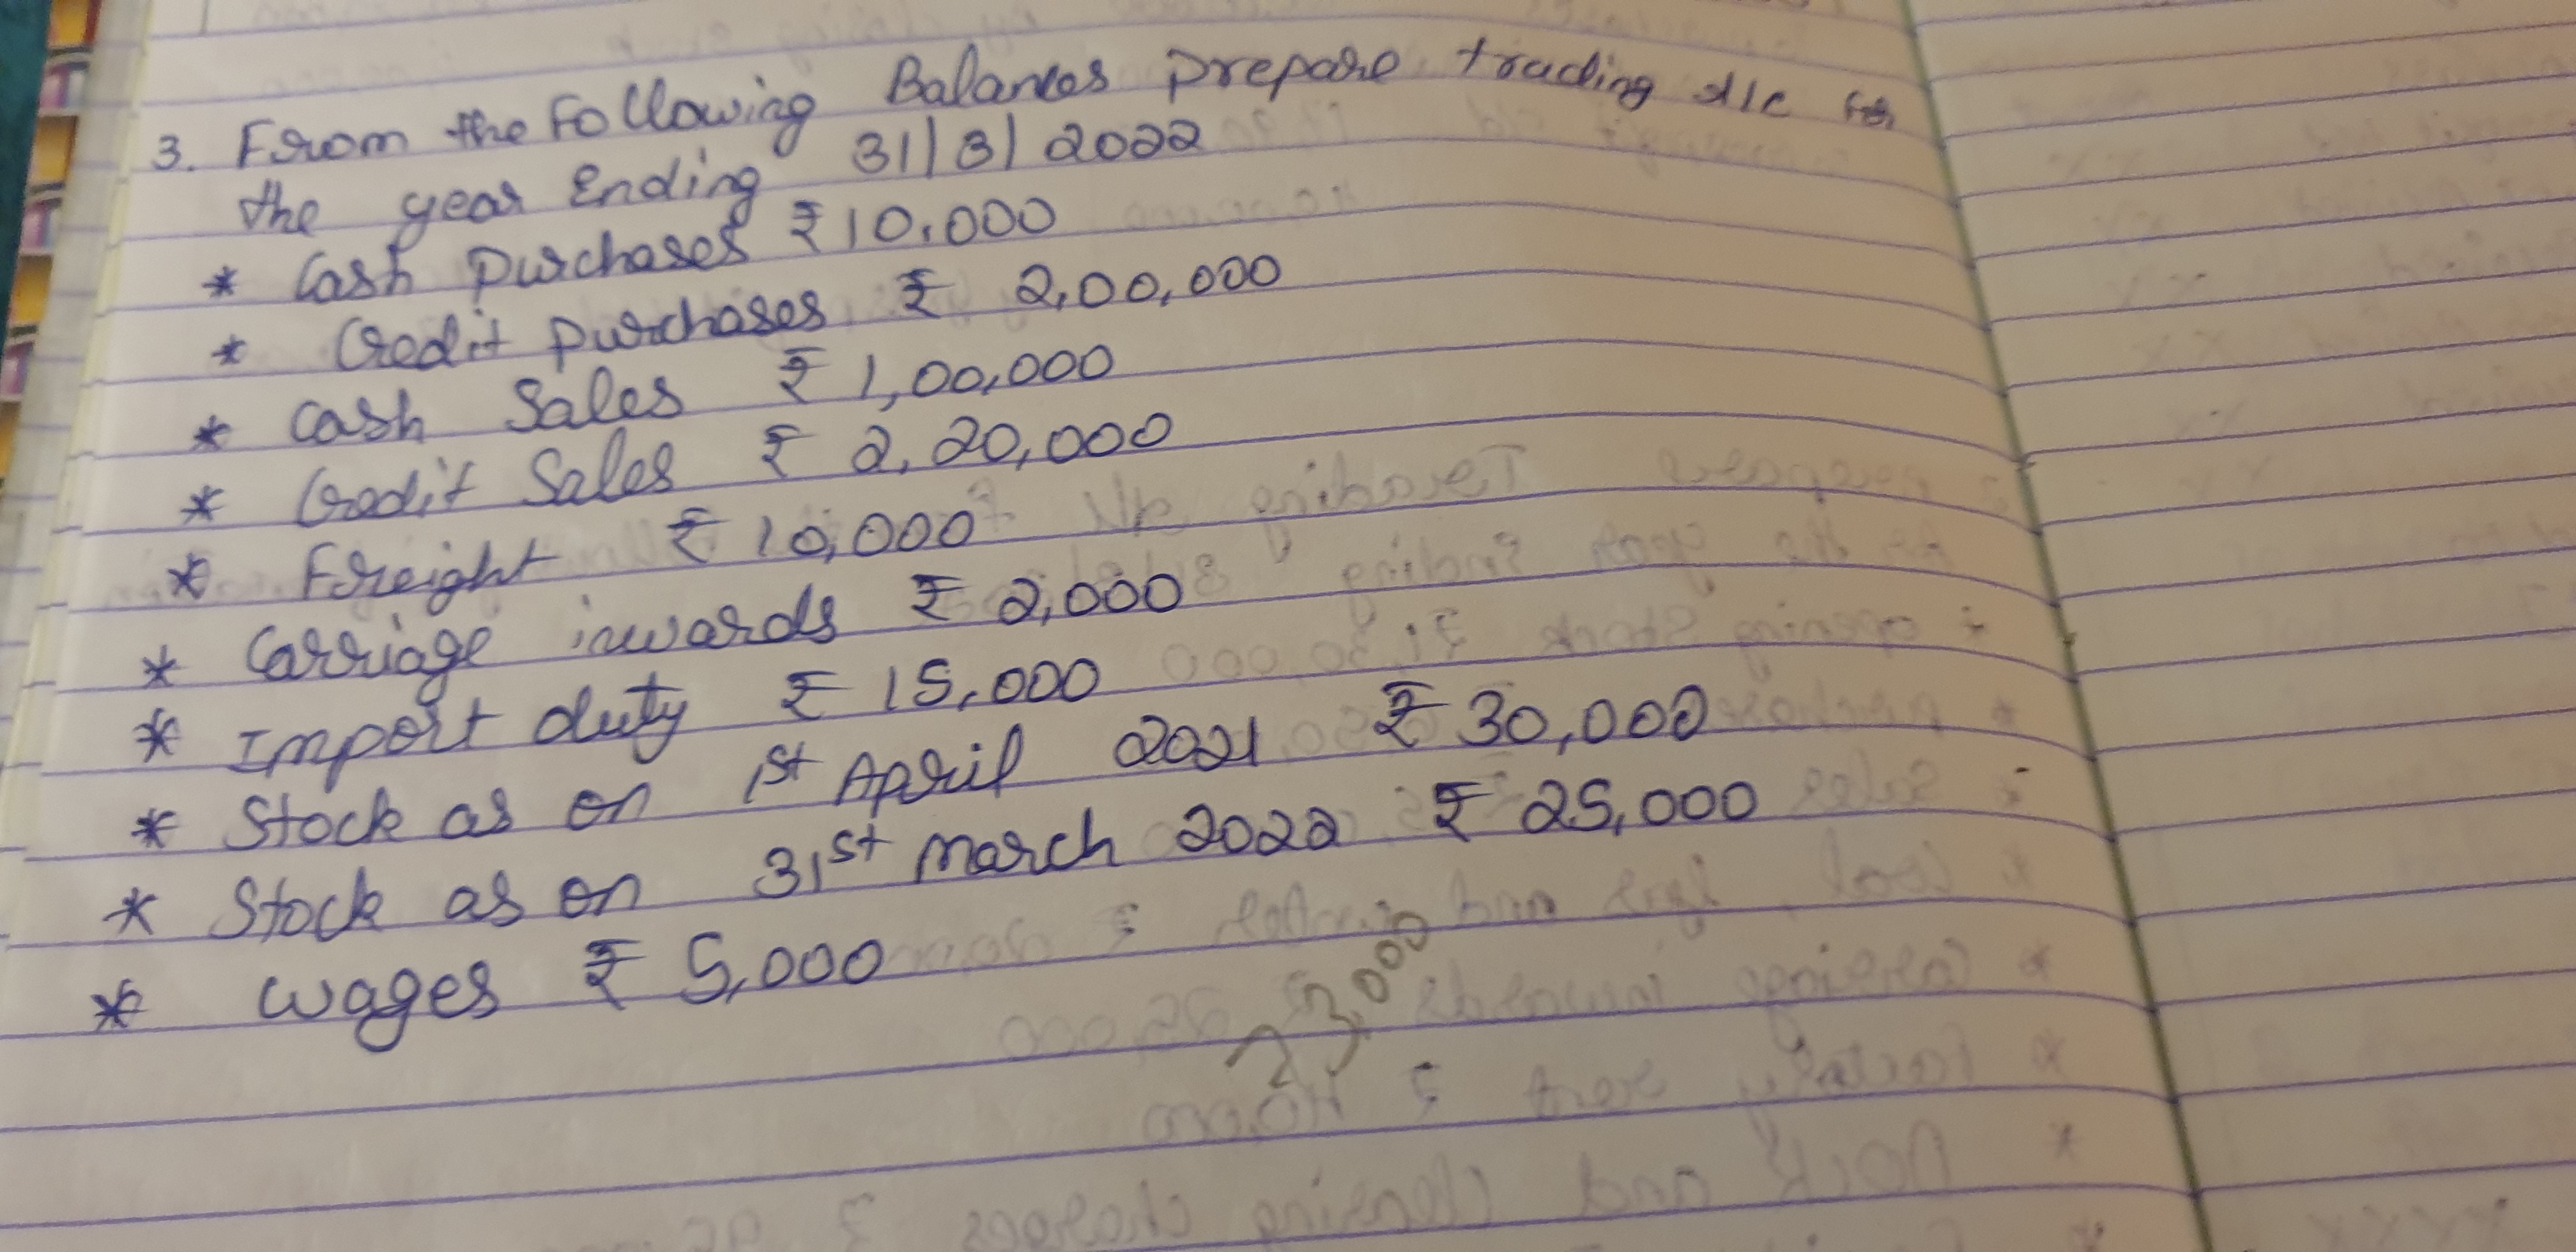 3. From the Following Balances prepare trading A/c for
the year Ending 31/3/2022
* Cash purchases ₹10,000
* Credit purchases ₹ 2,00,000
* Cash Sales ₹ 1,00,000
* Credit Sales ₹ 2,20,000
* Freight ₹ 10,000
* Carriage inwards ₹ 2,000
* Import duty ₹ 15,000
* Stock as on 1st April 2021 ₹ 30,000
* Stock as on 31st march 2022 ₹ 25,000
* wages ₹ 5,000
73,000